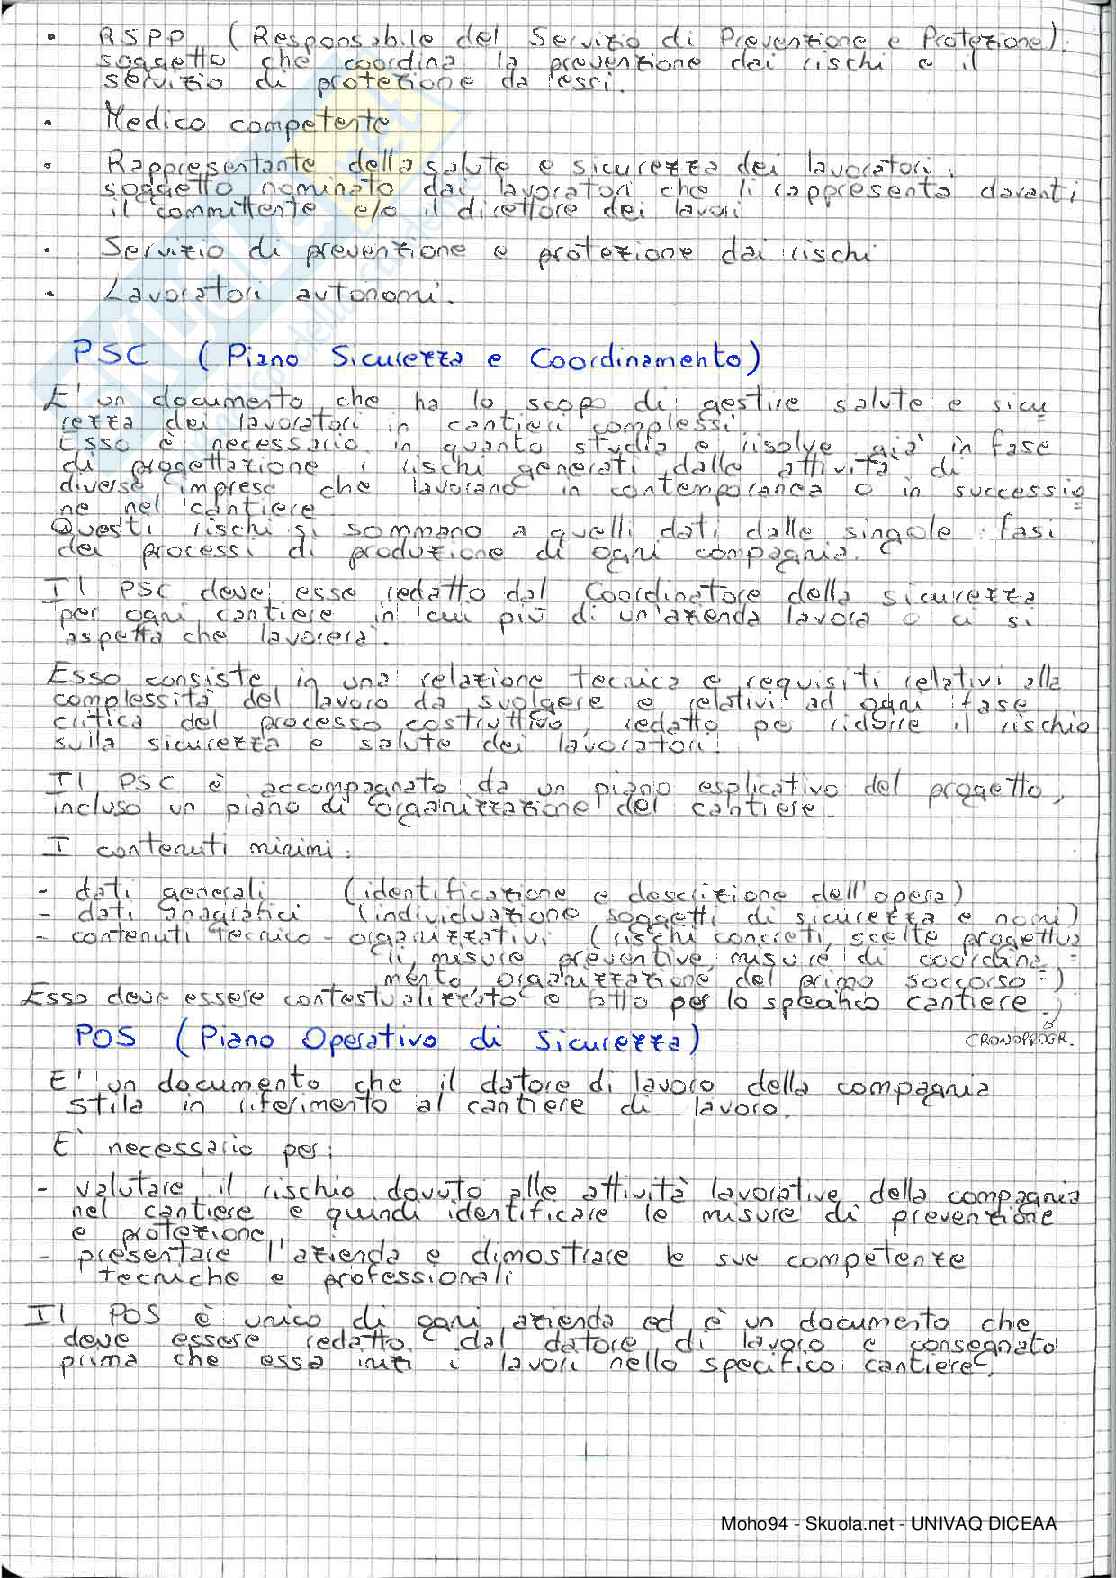 • RSPP (Responsabile del Servizio di Prevenzione e Protezione):
soggetto che coordina la prevenzione dai rischi e il
servizio di protezione da essi.
• Medico competente
• Rappresentante della salute e sicurezza dei lavoratori:
soggetto nominato dai lavoratori che li rappresenta davanti
il committente e/o il direttore dei lavori
• Servizio di prevenzione e protezione dai rischi
• Lavoratori autonomi.
PSC (Piano Sicurezza e Coordinamento)
E' un documento che ha lo scopo di gestire salute e sicu
rezza dei lavoratori in cantieri complessi.
Esso è necessario in quanto studia e risolve già in fase
di progettazione i rischi generati dalle attività di
diverse imprese che lavorano in contemporanea o in successio
ne nel cantiere
Questi rischi si sommano a quelli dati dalle singole fasi
dei processi di produzione di ogni compagnia.
Il PSC deve esse redatto dal Coordinatore della sicurezza
per ogni cantiere in cui più di un'azienda lavora o ci si
aspetta che lavorerà.
Esso consiste in una relazione tecnica e requisiti relativi alla
complessità del lavoro da svolgere e relativi ad ogni fase
critica del processo costruttivo, redatto per ridurre il rischio
sulla sicurezza e salute dei lavoratori.
Il PSC è accompagnato da un piano esplicativo del progetto,
incluso un piano di organizzazione del cantiere.
I contenuti minimi:
- dati generali (identificazione e descrizione dell'opera)
- dati anagrafici (individuazione soggetti di sicurezza e nomi)
- contenuti tecnico-organizzativi (rischi concreti, scelte progettua
li, misure preventive, misure di coordina-
mento, organizzazione del primo soccorso)
Esso deve essere contestualizzato e fatto per lo specifico cantiere.
CRONOPROGR.
POS (Piano Operativo di Sicurezza)
E' un documento che il datore di lavoro della compagnia
stila in riferimento al cantiere di lavoro.
E' necessario per:
- valutare il rischio dovuto alle attività lavorative della compagnia
nel cantiere e quindi identificare le misure di prevenzione
e protezione
- presentare l'azienda e dimostrare le sue competenze
tecniche e professionali
Il POS è unico di ogni azienda ed è un documento che
deve essere redatto dal datore di lavoro e consegnato
prima che essa inizi i lavori nello specifico cantiere.
Moho94 - Skuola.net - UNIVAQ DICEAA